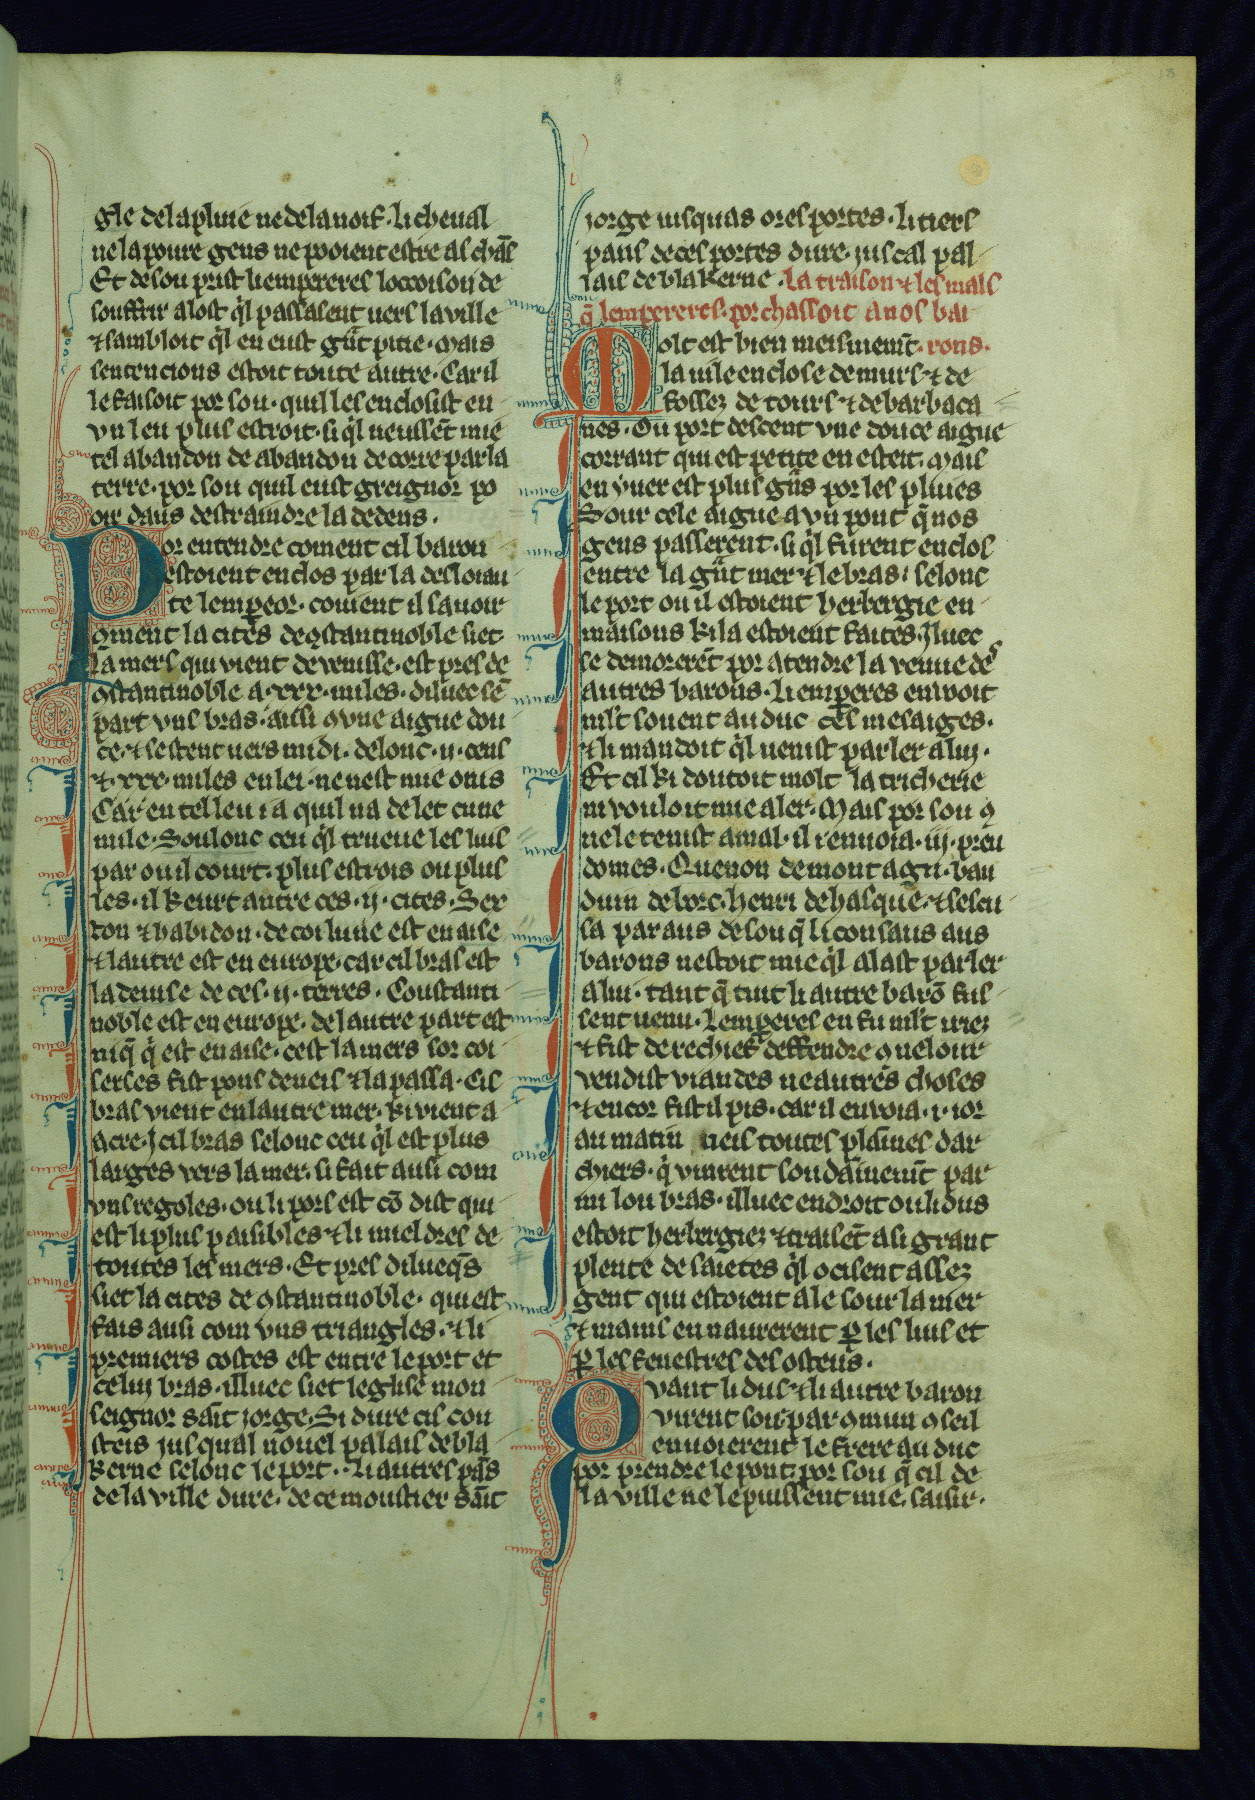 gle de la pluie ne de la noif· li cheual
ne la poure gens ne pooient estre as chās
Et de sou prist li empereres locoison de
souffrir a lost ql passasent uers la uille
⁊ sambloit ql en eust gūt pitie· Mais
sentencions estoit toute autre· Car il
le faisoit por sou· quil les enclosist en
vn leu plus estroit· si ql neussēt mie
tel abandon de abandon de corre par la
terre· por sou quil eust greignor po
oir dans destraindre la dedens·
Por entendre coment cil baron
estoient enclos par la desloiau
te lempeor· conient il sauoir
coment la cites de ꝯstantinoble siet·
La mers qui vient de venisse· est pres de
ꝯstantinoble a·xxx·miles· diluec sē
part vns bras· ausi ꝯ vne aigue dou
ce· ⁊ sestent uers midi· delonc·ij·cens
⁊·xxx·miles en lei· ne nest mie onis
Car en tel leu i a quil na de let cune
mile· Soulonc ceu ql trueue les luis
par ou il court· plus estrois ou plus
les· il keurt antre ces·ij·cites· Sex
ton ⁊ habidon· de coi lune est en aise
⁊ lautre est en europe· car cil bras est
la deuise de ces·ij·terres· Constanti
noble est en europe· de lautre part est
niq̄ q̇ est en aise· cest la mers sor coi
serses fist pons de neis ⁊ la passa· Cis
bras vient en lautre mer· ki vient a
acre· J cil bras selonc ceu ql est plus
larges vers la mer· si fait ausi com
vns regoles· ou li pors est cō dist qui
est li plus paisibles ⁊ li mieldres de
toutes les mers· Et pres dilueqs
siet la cites de ꝯstantinoble· qui est
fais ausi com vns triangles· ⁊ li
premiers costes est entre le port et
celui bras· illuec siet leglise mon
seignor sāit jorge· Si dure cis cou
steis jusqual nouel palais de bla
kerne selonc le port·· Li autres pās
de la ville dure· de ce moustier sāit
jorge iusquas ores portes· li tiers
pans de ces portes dure· juscal pal
lais de blakerne· La traison ⁊ les mals
q̄ lempereres· porchassoit a nos bai
Molt est bien meismemēt· rons·
la uile enclose de murs ⁊ de
fossez de tours ⁊ de barbaca
nes· Ou port descent vne douce aigue
corrant qui est petite en esteit· Mais
en yuer est plus gūs por les pluies
Sour cele aigue a vn pont q̄ nos
gens passerent· si ql furent enclos
entre la gūt mer ⁊ le bras· selonc
le port ou il estoient herbergie en
maisons ki la estoient faites· Jluec
se demorerēt por atendre la venue des
autres barons· li emperes enuoit
mlt souent au duc ces mesaiges·
⁊ li mandoit ql uenist parler a luj·
Et cil ki doutoit molt la tricherie
ni vouloit mie aler· Mais por sou ꝯ
ne le tenist a mal· il i enuoia·iij·preu
domes· Quenon de montagu· bau
duin de borc· henri de halque· ⁊ se seu
sa par aus de sou q̄ li consaus aus
barons nestoit mie ql alast parler
a lui· tant q̄ tuit li autre barō fus
sent uenu· Lemperes en fu mlt iriez
⁊ fist derechief deffendre ꝯ ne lour
vendist viandes ne autres choses
⁊ encor fist il pis· car il enuoia·i·ior
au matin neis toutes plaines dar
chiers· q̇ vinrent soudainemēt par
mi lou bras· illuec endroit ou li dus
estoit herbergiez ⁊ traisēt a si grant
plente de saietes ql ocisent assez
gent qui estoient ale sour la mer
⁊ mains en naurerent ꝑ les luis et
ꝑ les fenestres des osteus·
Qvant li dus ⁊ li autre baron
virent sou· par ꝯmun ꝯseil
enuoierent le frere au duc
por prendre le pont· por sou q̄ cil de
la ville ne le puissent mie saisir·